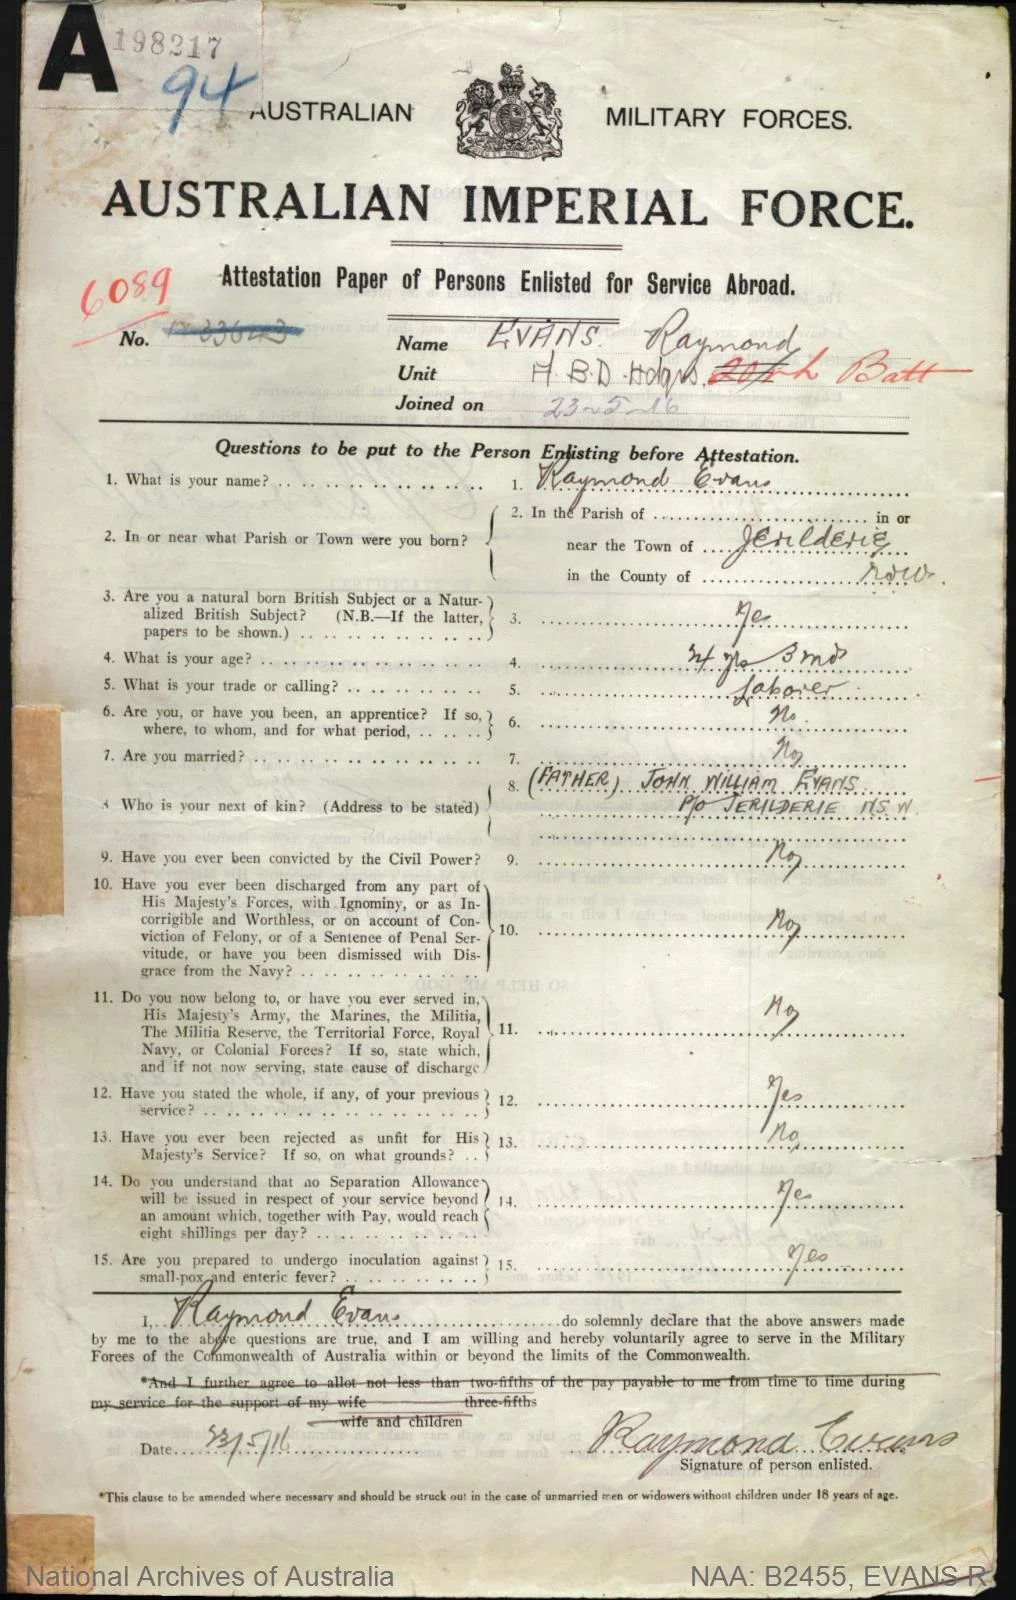 A 198217
94
AUSTRALIAN MILITARY FORCES.
AUSTRALIAN IMPERIAL FORCE.
Attestation Paper of Persons Enlisted for Service Abroad.
6089
No. 33643
Name EVANS. Raymond
Unit A B.D. Hdqrs. Batt
Joined on 23-5-16
Questions to be put to the Person Enlisting before Attestation.
1. What is your name? 1. Raymond Evans
2. In or near what Parish or Town were you born? 2. In the Parish of in or
near the Town of Jerilderie
in the County of NSW.
3. Are you a natural born British Subject or a Natur-
alized British Subject? (N.B.—If the latter, 3. Yes
papers to be shown.)
4. What is your age? 4. 24 yrs 3 mos
5. What is your trade or calling? 5. Laborer
6. Are you, or have you been, an apprentice? If so, 6. No.
where, to whom, and for what period,
7. Are you married? 7. No,
8. (FATHER) JOHN WILLIAM EVANS
Who is your next of kin? (Address to be stated) P/O JERILDERIE N.S.W.
9. Have you ever been convicted by the Civil Power? 9. No,
10. Have you ever been discharged from any part of
His Majesty's Forces, with Ignominy, or as In-
corrigible and Worthless, or on account of Con-
viction of Felony, or of a Sentence of Penal Ser- 10. No,
vitude, or have you been dismissed with Dis-
grace from the Navy?
11. Do you now belong to, or have you ever served in,
His Majesty's Army, the Marines, the Militia,
The Militia Reserve, the Territorial Force, Royal 11. No,
Navy, or Colonial Forces? If so, state which,
and if not now serving, state cause of discharge
12. Have you stated the whole, if any, of your previous 12. Yes
service?
13. Have you ever been rejected as unfit for His 13. No,
Majesty's Service? If so, on what grounds?
14. Do you understand that no Separation Allowance
will be issued in respect of your service beyond 14. Yes
an amount which, together with Pay, would reach
eight shillings per day?
15. Are you prepared to undergo inoculation against 15. Yes
small-pox and enteric fever?
I, Raymond Evans do solemnly declare that the above answers made
by me to the above questions are true, and I am willing and hereby voluntarily agree to serve in the Military
Forces of the Commonwealth of Australia within or beyond the limits of the Commonwealth.
*And I further agree to allot not less than two-fifths of the pay payable to me from time to time during
my service for the support of my wife three-fifths
wife and children
Date 23/5/16 Raymond Evans
Signature of person enlisted.
*This clause to be amended where necessary and should be struck out in the case of unmarried men or widowers without children under 18 years of age.
National Archives of Australia NAA: B2455, EVANS R